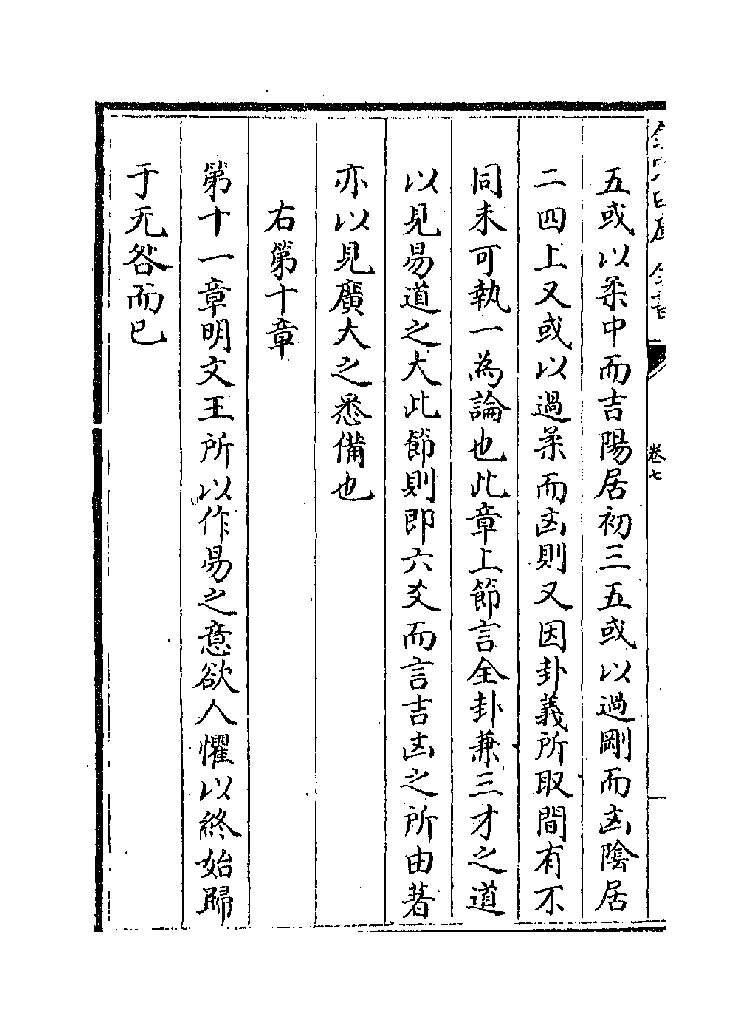 卷七
五或以柔中而吉陽居初三五或以過剛而凶陰居
二四上又或以過柔而凶則又因卦義所取間有不
同未可執一為論也此章上節言全卦兼三才之道
以見易道之大此節則即六爻而言吉凶之所由著
亦以見廣大之悉備也
右第十章
第十一章明文王所以作易之意欲人懼以終始歸
于无咎而已